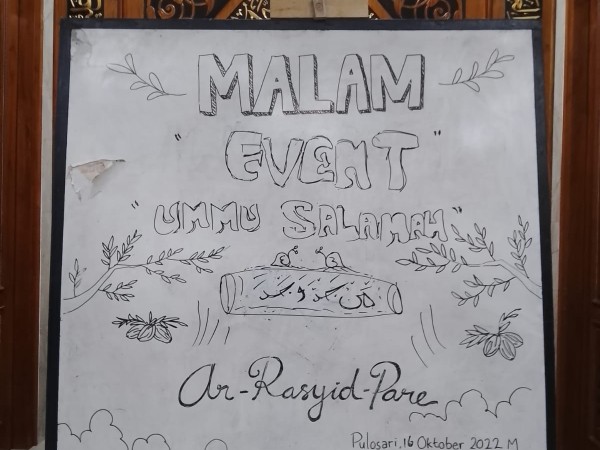 MALAM
"EVENT"
"UMMU SALAMAH"
من جد وجد
Ar-Rasyid-Pare
Pulosari, 16 Oktober 2022 M